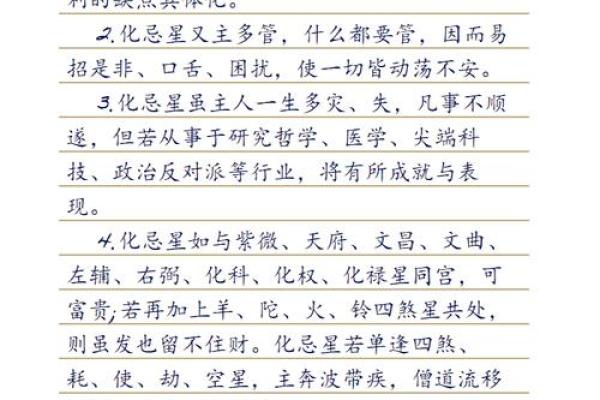 利的缺点具体化。
2.化忌星又主多管，什么都要管，因而易
招是非、口舌、困扰，使一切皆动荡不安。
3.化忌星虽主人一生多灾、失，凡事不顺
遂，但若从事于研究哲学、医学、尖端科
技、政治反对派等行业，将有所成就与表
现。
4.化忌星如与紫微、天府、文昌、文曲、
左辅、右弼、化科、化权、化禄星同宫，可
富贵;若再加上羊、陀、火、铃四煞星共处，
则虽发也留不住财。化忌星若单逢四煞、
耗、使、劫、空星，主奔波带疾，僧道流移